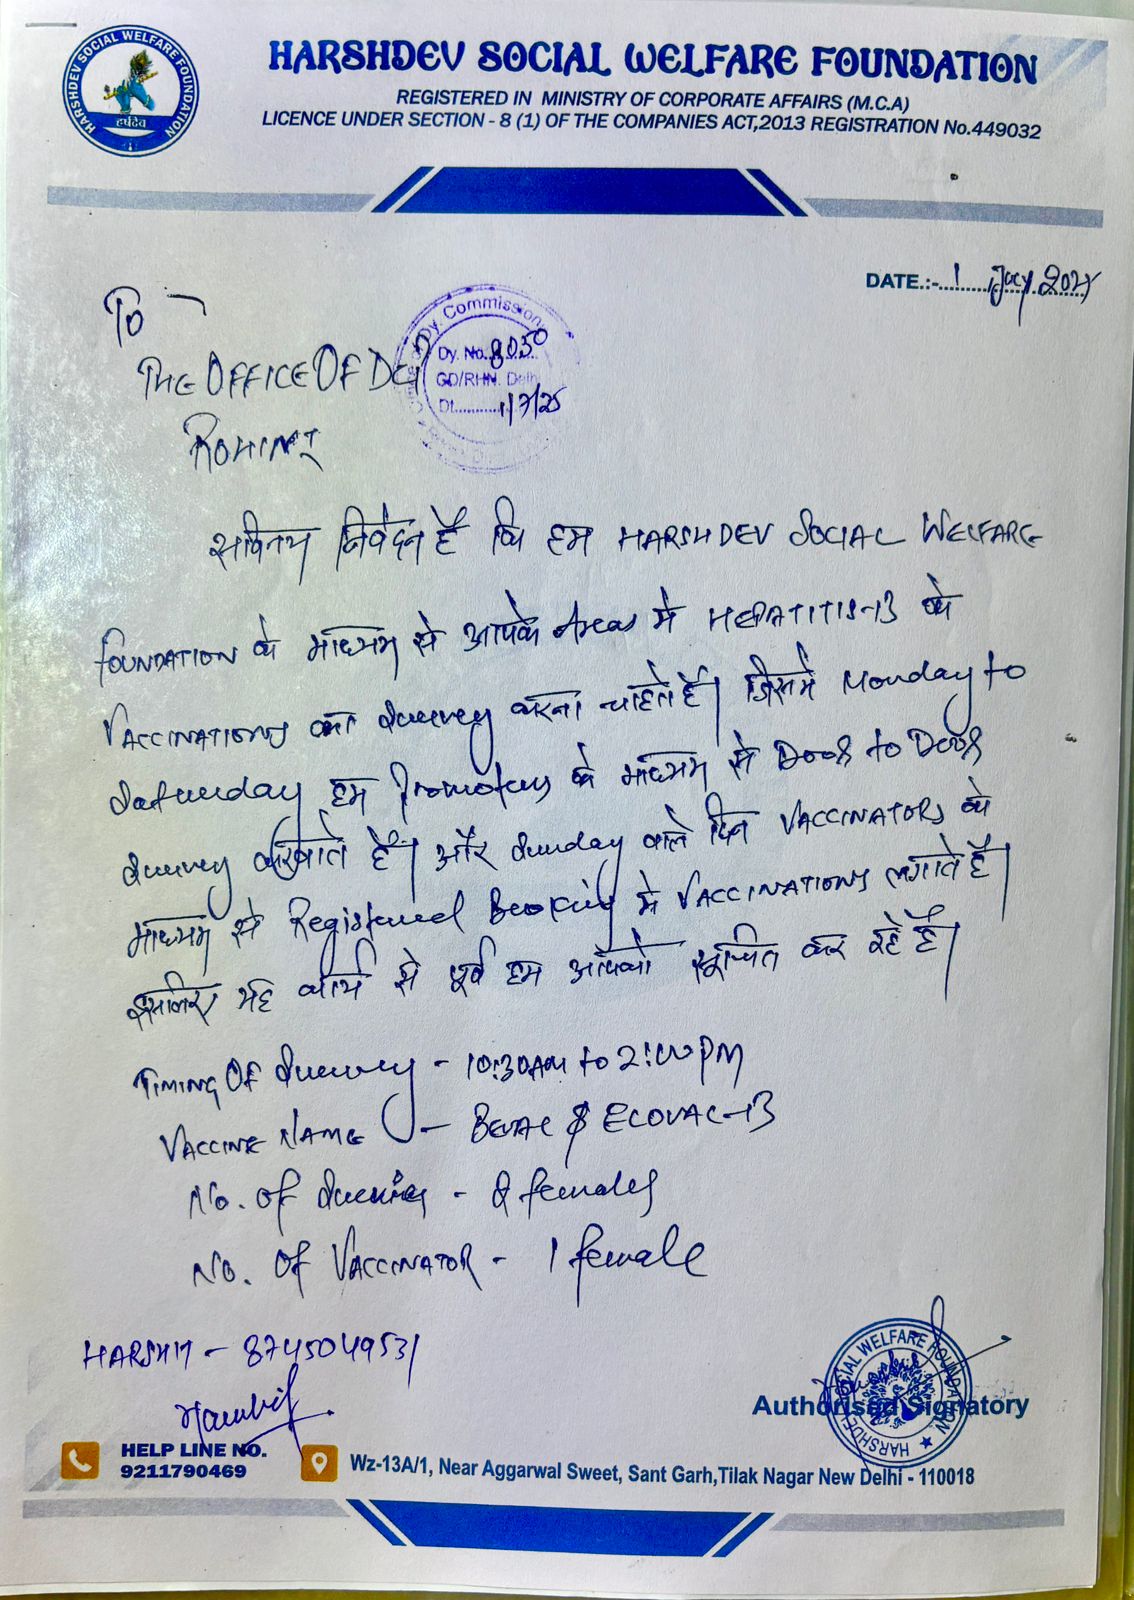 HARSHDEV SOCIAL WELFARE FOUNDATION
हर्षदेव
HARSHDEV SOCIAL WELFARE FOUNDATION
REGISTERED IN MINISTRY OF CORPORATE AFFAIRS (M.C.A)
LICENCE UNDER SECTION - 8 (1) OF THE COMPANIES ACT,2013 REGISTRATION No.449032
DATE.:- 1 July 202
To
Dy. Commissione
Dy. No. 8050
GD/RHN. Delh
Dt. 1/7/25
THE OFFICE OF DC
ROHINI
सविनय निवेदन है कि हम HARSHDEV SOCIAL WELFARE
FOUNDATION के माध्यम से आपके Areas मे HEPATITIS-B के
VACCINATIONS का Survey करना चाहते हैं। जिसमे Monday to
Saturday हम Promoters के माध्यम से Door to Door
Survey करवाते हैं। और Sunday वाले दिन VACCINATORS के
माध्यम से Registered Booking मे VACCINATIONS लगाते हैं।
इसलिए यह कार्य से पूर्व हम आपको सूचित कर रहे हैं।
TIMING OF Survey - 10:30AM to 2:00PM
VACCINE NAME - BEVAC & ECOVAC-B
No. of - females
No. OF VACCINATOR - 1 female
HARSHIT - 8745049531
HARSHDEV SOCIAL WELFARE FOUNDATION
Authorised Signatory
HELP LINE NO.
9211790469
Wz-13A/1, Near Aggarwal Sweet, Sant Garh,Tilak Nagar New Delhi - 110018